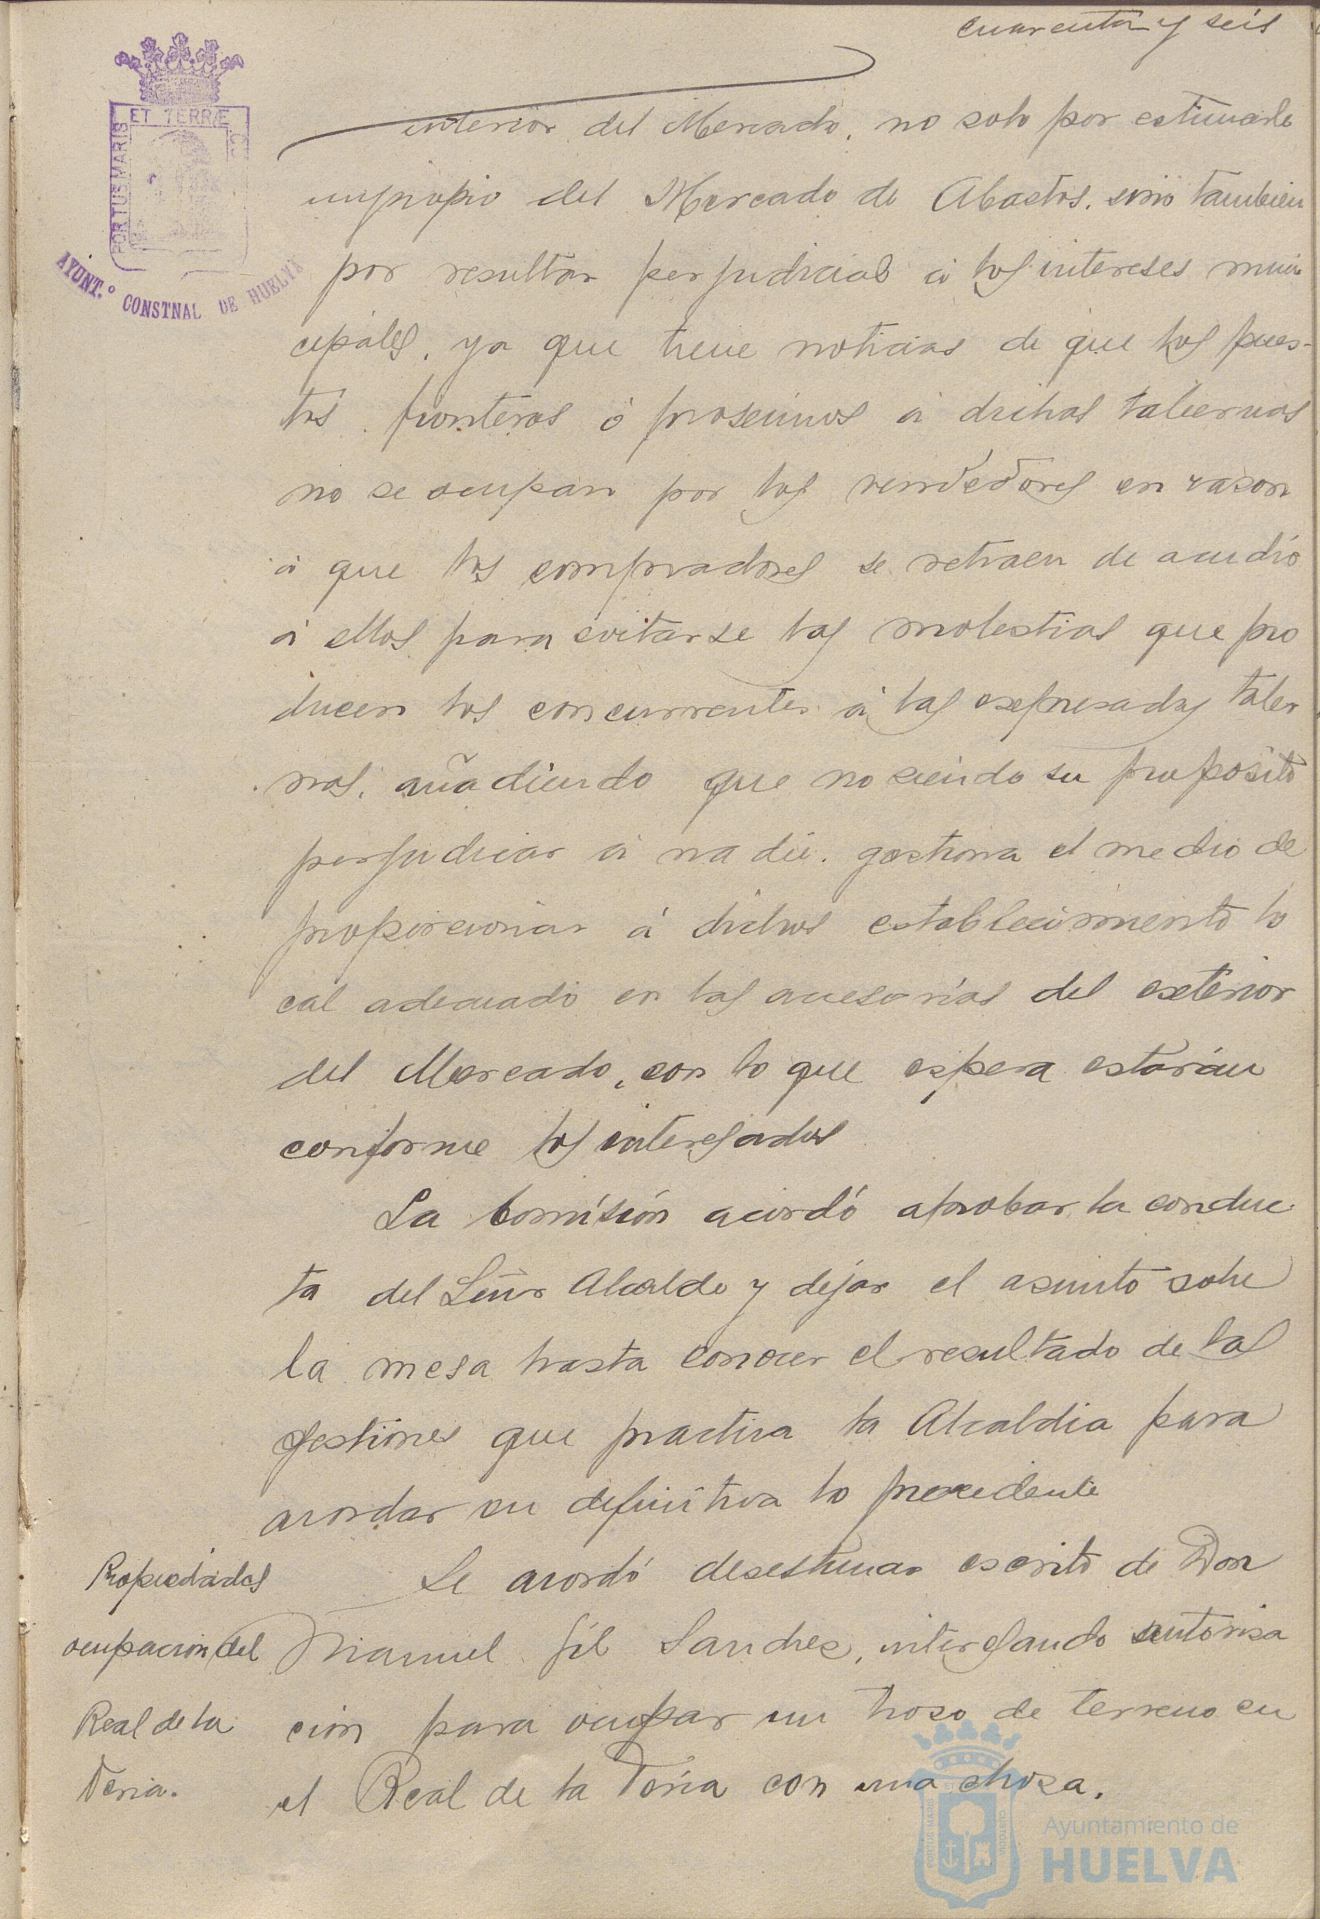 cuarenta y seis
ET TERRÆ
PORTUS MARIS
AYUNT.º CONSTNAL DE HUELVA
interior del Mercado, no solo por estimarlo
impropio del Mercado de Abastos, sino tambien
por resultar perjudicial á los intereses muni
cipales, ya que tiene noticias de que los pues-
tos fronteros ó proseimos á dichas tabernas
no se ocupan por los vendedores en razon
á que los compradores se retraen de acudir
á ellos para evitarse las molestias que pro
ducen los concurrentes á las espresadas taber
nas, añadiendo que no siendo su proposito
perjudicar á nadie, gestiona el medio de
proporcionar á dichos establecimiento lo
cal adecuado en las accesorias del exterior
del Mercado, con lo que espera estarán
conforme los interesados
La Comisión acordó aprobar la conduc
ta del Señor Alcalde y dejar el asunto sobre
la mesa hasta conocer el resultado de las
gestiones que practica la Alcaldia para
acordar en definitiva lo procedente
Propiedades
ocupacion del
Real de la
Feria.
Se acordó desestimar escrito de Don
Manuel Gil Sanchez, interesando autoriza
cion para ocupar un troso de terreno en
el Real de la Feria con una choza.
Ayuntamiento de
HUELVA